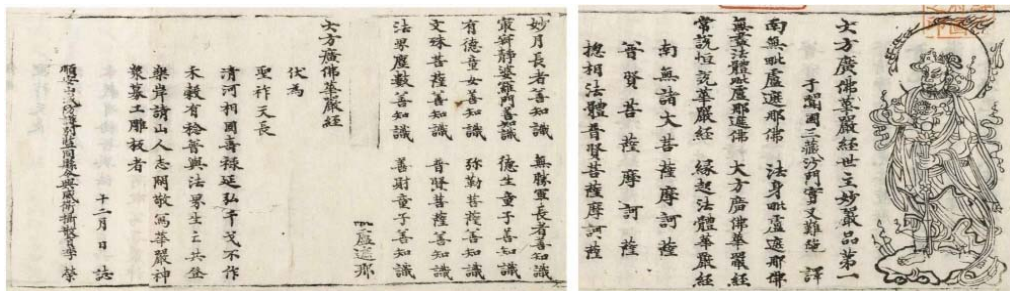 大方廣佛華嚴經世主妙嚴品第一
于闐國三藏沙門實叉難陁 譯
南無毗盧遮那佛 法身毗盧遮那佛
法體毗盧那遮佛 大方廣佛華嚴經
常說恒說華嚴經 緣起法體華嚴經
南無諸大菩薩摩訶薩
普賢菩薩摩訶薩
捴相法體普賢菩薩摩訶薩
妙月長者善知識 無勝軍長者善知識
寂靜婆羅門善知識 德生童子善知識
有德童女善知識 弥勒菩薩善知識
文殊菩薩善知識 普賢菩薩善知識
法界塵數善知識 善財童子善知識
盧遮那
大方廣佛華嚴經
伏為
聖祚天長
清河相國壽祿延弘干戈不作
禾穀有稔普與法界生亡共登
樂岸請山人志閑敬寫華嚴神
衆募工雕板者
十二月 日 誌